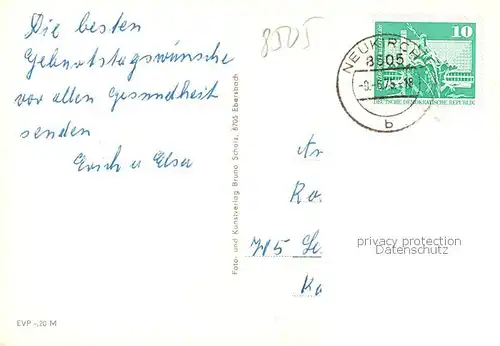 Die besten
Geburtstagswünsche
vor allen Gesundheit
senden
Erich u Elsa
8505
10
NEUKIRCH
8505
-18
b
DEUTSCHE DEMOKRATISCHE REPUBLIK
Foto- und Kunstverlag Bruno Scholz, 8705 Ebersbach
Ar
Ko
privacy protection
Datenschutz
EVP -,20 M